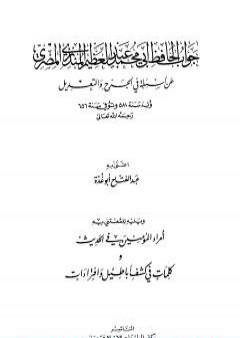 جواب الحافظ أبي محمد عبد العظيم المنذري المصري
عن أسئلة في الجرح والتعديل
ولد سنة ٥٨١ وتوفي سنة ٦٥٦
رحمه الله تعالى
عبد الفتاح أبو غدة
أمراء المؤمنين في الحديث
و
كلمات في كشف أباطيل وافتراءات
الناشر